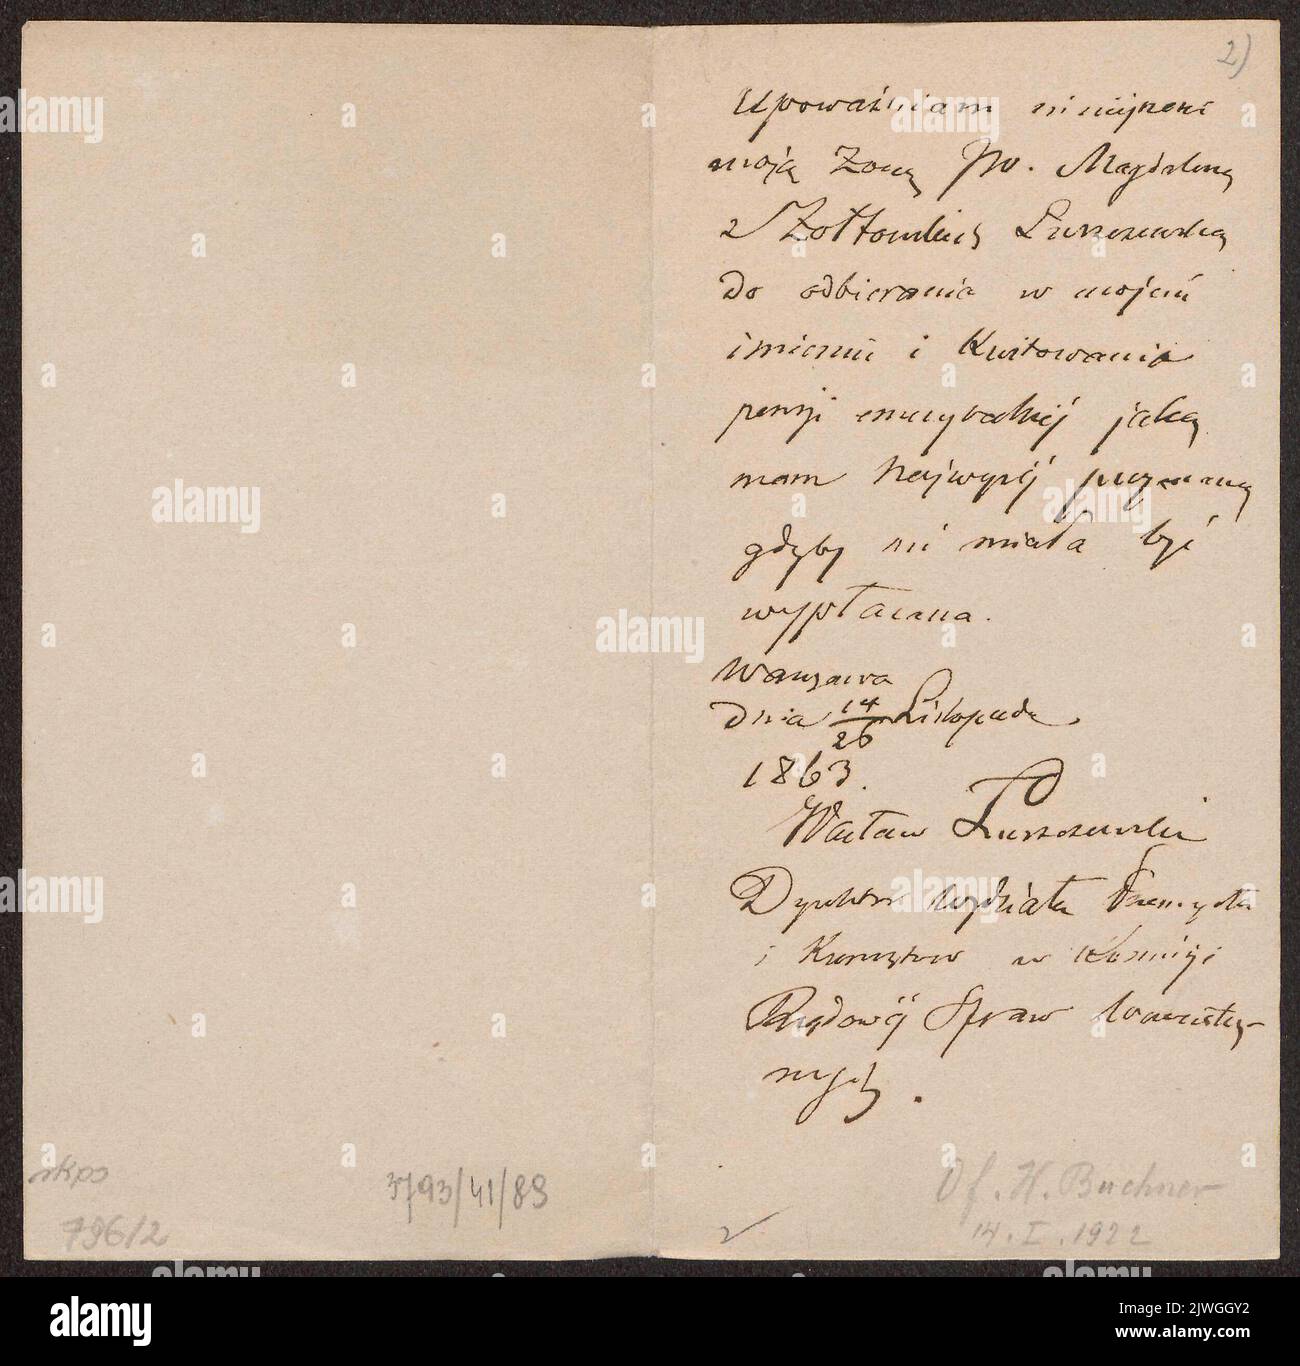 2)
Upoważniam niniejszem
moją żonę JW. Magdalenę
z Żółtowskich Łuszczewską
do odbierania w mojem
imieniu i Kwitowania
pensji emerytalnej jaką
mam Najwyżej przyznaną
gdyby mi miała być
wypłacana.
Warszawa
dnia 14/26 Listopada
1863.
Wacław Łuszczewski
Dyrektor Wydziału Przemysłu
i Kunsztów w Komisji
Rządowej Spraw Wewnętrz-
nych.
3793/41/89
796/2
Of. H. Buchner
14. I. 1922
alamy
Image ID: 2JWGGY2
www.alamy.com